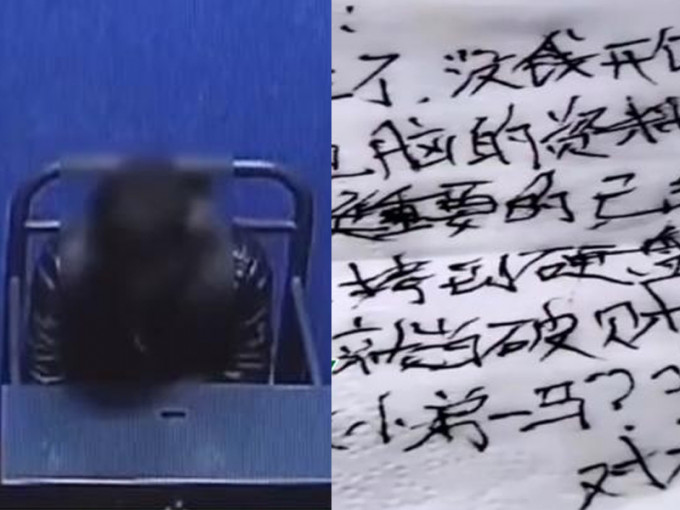 了.没钱开
脑的资料
重要的已
拷到硬盘
当破财
小弟一马??
对